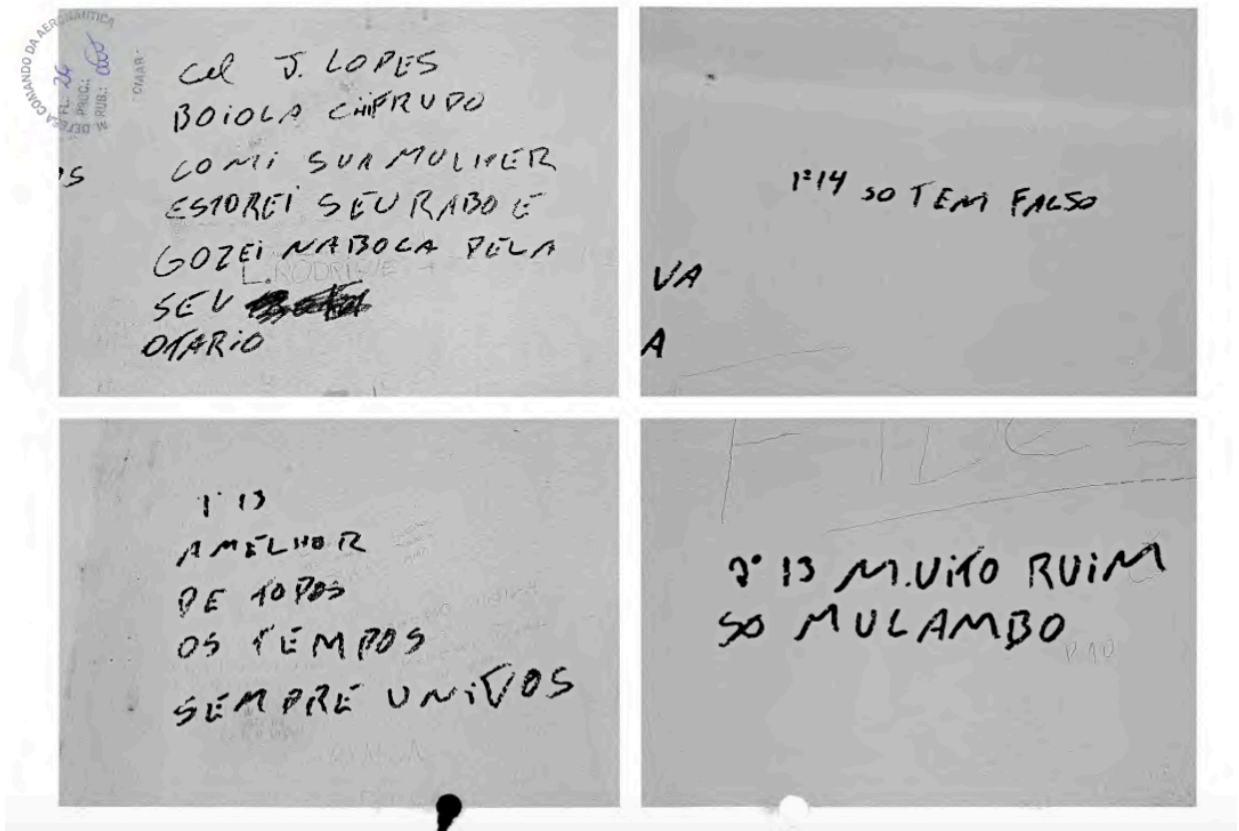 COMANDO DA AERONÁUTICA
FL: 24
PROC.:
RUB.:
COMAR-
Cel J. LOPES
BOIOLA CHIFRUDO
COMI SUA MULHER
ESTOREI SEU RABO E
GOZEI NA BOCA DELA
L.RODRIGUE
SEU
OTARIO
OS
1º14 SO TEM FALSO
VA
A
1º 13
A MELHOR
DE TODOS
OS TEMPOS
SEMPRE UNIDOS
2º 13 MUITO RUIM
SO MULAMBO